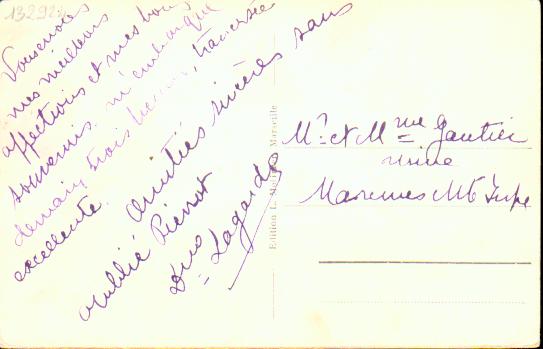 13292
Vous envoie
mes meilleurs
affections et mes bons
souvenirs. m'embarque
demain trois heures, traversée
excellente.
Amitiés sincères sans
oublié Pierrot
Duo
Lagarde
Edition L. Marseille
Mr et Mme Gautier
usine
Marennes